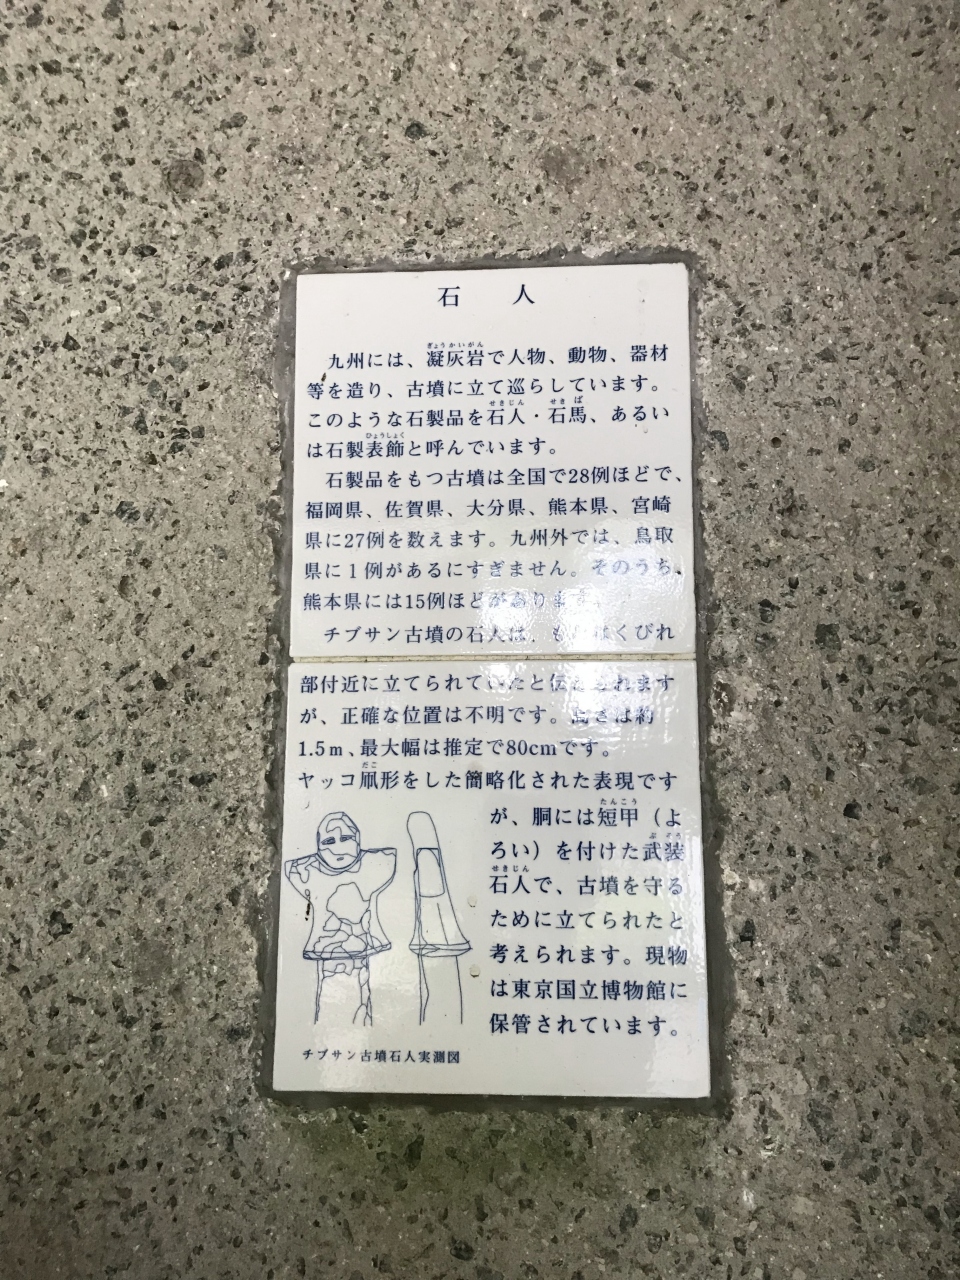 石　人
九州には、凝灰岩で人物、動物、器材
等を造り、古墳に立て巡らしています。
このような石製品を石人・石馬、あるい
は石製表飾と呼んでいます。
石製品をもつ古墳は全国で28例ほどで、
福岡県、佐賀県、大分県、熊本県、宮崎
県に27例を数えます。九州外では、鳥取
県に１例があるにすぎません。そのうち、
熊本県には15例ほどがあります。
チブサン古墳の石人は、もとはくびれ
部付近に立てられていたと伝えられます
が、正確な位置は不明です。高さは約
1.5m、最大幅は推定で80cmです。
ヤッコ凧形をした簡略化された表現です
が、胴には短甲（よ
ろい）を付けた武装
石人で、古墳を守る
ために立てられたと
考えられます。現物
は東京国立博物館に
保管されています。
チブサン古墳石人実測図